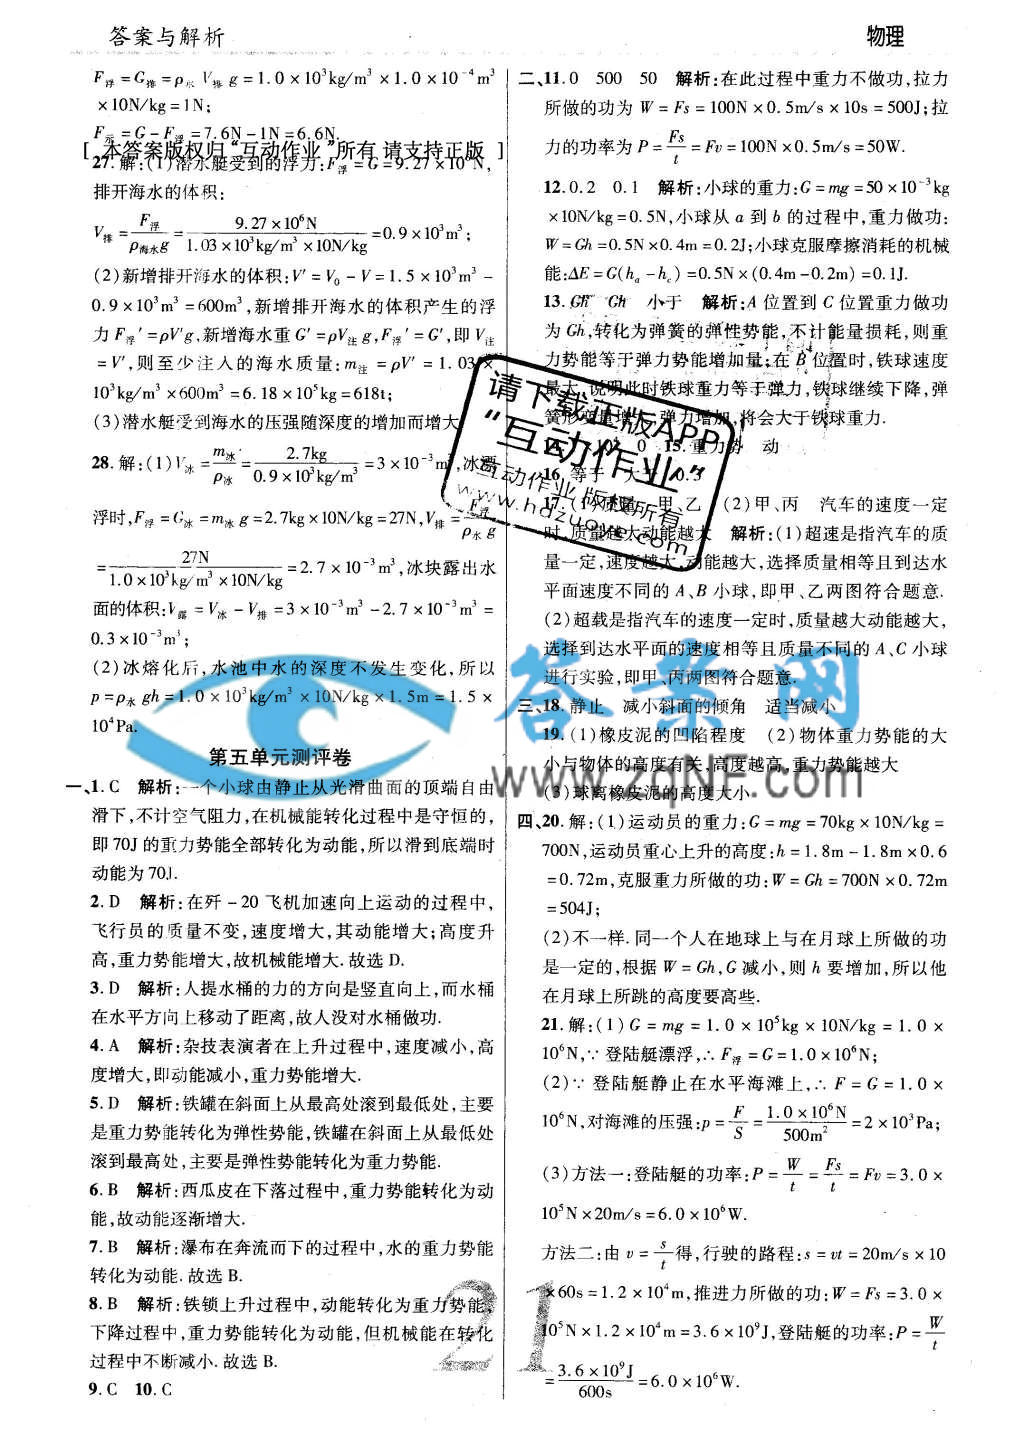 答案与解析
物理
F浮=G排=ρ水 V排 g=1.0×10³kg/m³×1.0×10⁻⁴m³
×10N/kg=1N;
F示=G-F浮=7.6N-1N=6.6N.
[ 本答案版权归“互动作业”所有 请支持正版 ]
27.解:(1)潜水艇受到的浮力:F浮=G=9.27×10⁶N,
排开海水的体积:
V排=F浮/ρ海水g=9.27×10⁶N/1.03×10³kg/m³×10N/kg=0.9×10³m³;
(2)新增排开海水的体积:V′=V₀-V=1.5×10³m³-
0.9×10³m³=600m³,新增排开海水的体积产生的浮
力F浮′=ρV′g,新增海水重G′=ρV注g,F浮′=G′,即V注
=V′,则至少注入的海水质量:m注=ρV′=1.03×
10³kg/m³×600m³=6.18×10⁵kg=618t;
(3)潜水艇受到海水的压强随深度的增加而增大
28.解:(1)V冰=m冰/ρ冰=2.7kg/0.9×10³kg/m³=3×10⁻³m³,冰漂
浮时,F浮=G冰=m冰g=2.7kg×10N/kg=27N,V排=F浮/ρ水g
=27N/1.0×10³kg/m³×10N/kg=2.7×10⁻³m³,冰块露出水
面的体积:V露=V冰-V排=3×10⁻³m³-2.7×10⁻³m³=
0.3×10⁻³m³;
(2)冰熔化后,水池中水的深度不发生变化,所以
p=ρ水gh=1.0×10³kg/m³×10N/kg×1.5m=1.5×
10⁴Pa.
第五单元测评卷
一、1.C 解析:一个小球由静止从光滑曲面的顶端自由
滑下,不计空气阻力,在机械能转化过程中是守恒的,
即70J的重力势能全部转化为动能,所以滑到底端时
动能为70J.
2.D 解析:在歼-20飞机加速向上运动的过程中,
飞行员的质量不变,速度增大,其动能增大;高度升
高,重力势能增大,故机械能增大.故选D.
3.D 解析:人提水桶的力的方向是竖直向上,而水桶
在水平方向上移动了距离,故人没对水桶做功.
4.A 解析:杂技表演者在上升过程中,速度减小,高
度增大,即动能减小,重力势能增大.
5.D 解析:铁罐在斜面上从最高处滚到最低处,主要
是重力势能转化为弹性势能,铁罐在斜面上从最低处
滚到最高处,主要是弹性势能转化为重力势能.
6.B 解析:西瓜皮在下落过程中,重力势能转化为动
能,故动能逐渐增大.
7.B 解析:瀑布在奔流而下的过程中,水的重力势能
转化为动能.故选B.
8.B 解析:铁锁上升过程中,动能转化为重力势能,
下降过程中,重力势能转化为动能,但机械能在转化
过程中不断减小.故选B.
9.C 10.C
二、11.0 500 50 解析:在此过程中重力不做功,拉力
所做的功为W=Fs=100N×0.5m/s×10s=500J;拉
力的功率为P=Fs/t=Fv=100N×0.5m/s=50W.
12.0.2 0.1 解析:小球的重力:G=mg=50×10⁻³kg
×10N/kg=0.5N,小球从a到b的过程中,重力做功:
W=Gh=0.5N×0.4m=0.2J;小球克服摩擦消耗的机械
能:ΔE=G(hₐ-h꜀)=0.5N×(0.4m-0.2m)=0.1J.
13.Gh Gh 小于 解析:A位置到C位置重力做功
为Gh,转化为弹簧的弹性势能,不计能量损耗,则重
力势能等于弹力势能增加量;在B位置时,铁球速度
最大,说明此时铁球重力等于弹力,铁球继续下降,弹
簧形变量增大,弹力增加,将会大于铁球重力.
0 15.重力势 动
16.等于 大于 0.3
17.(1)质量 甲、乙 (2)甲、丙 汽车的速度一定
时,质量越大动能越大 解析:(1)超速是指汽车的质
量一定,速度越大,动能越大,选择质量相等且到达水
平面速度不同的A、B小球,即甲、乙两图符合题意.
(2)超载是指汽车的速度一定时,质量越大动能越大,
选择到达水平面的速度相等且质量不同的A、C小球
进行实验,即甲、丙两图符合题意.
三、18.静止 减小斜面的倾角 适当减小
19.(1)橡皮泥的凹陷程度 (2)物体重力势能的大
小与物体的高度有关,高度越高,重力势能越大
(3)球离橡皮泥的高度大小
四、20.解:(1)运动员的重力:G=mg=70kg×10N/kg=
700N,运动员重心上升的高度:h=1.8m-1.8m×0.6
=0.72m,克服重力所做的功:W=Gh=700N×0.72m
=504J;
(2)不一样.同一个人在地球上与在月球上所做的功
是一定的,根据W=Gh,G减小,则h要增加,所以他
在月球上所跳的高度要高些.
21.解:(1)G=mg=1.0×10⁵kg×10N/kg=1.0×
10⁶N,∵登陆艇漂浮,∴F浮=G=1.0×10⁶N;
(2)∵登陆艇静止在水平海滩上,∴F=G=1.0×
10⁶N,对海滩的压强:p=F/S=1.0×10⁶N/500m²=2×10³Pa;
(3)方法一:登陆艇的功率:P=W/t=Fs/t=Fv=3.0×
10⁵N×20m/s=6.0×10⁶W.
方法二:由v=s/t得,行驶的路程:s=vt=20m/s×10
×60s=1.2×10⁴m,推进力所做的功:W=Fs=3.0×
10⁵N×1.2×10⁴m=3.6×10⁹J,登陆艇的功率:P=W/t
=3.6×10⁹J/600s=6.0×10⁶W.
请下载正版APP
“互动作业”
互动作业版权所有
www.hdzuoye.com
答案网
www.zqnf.com
21